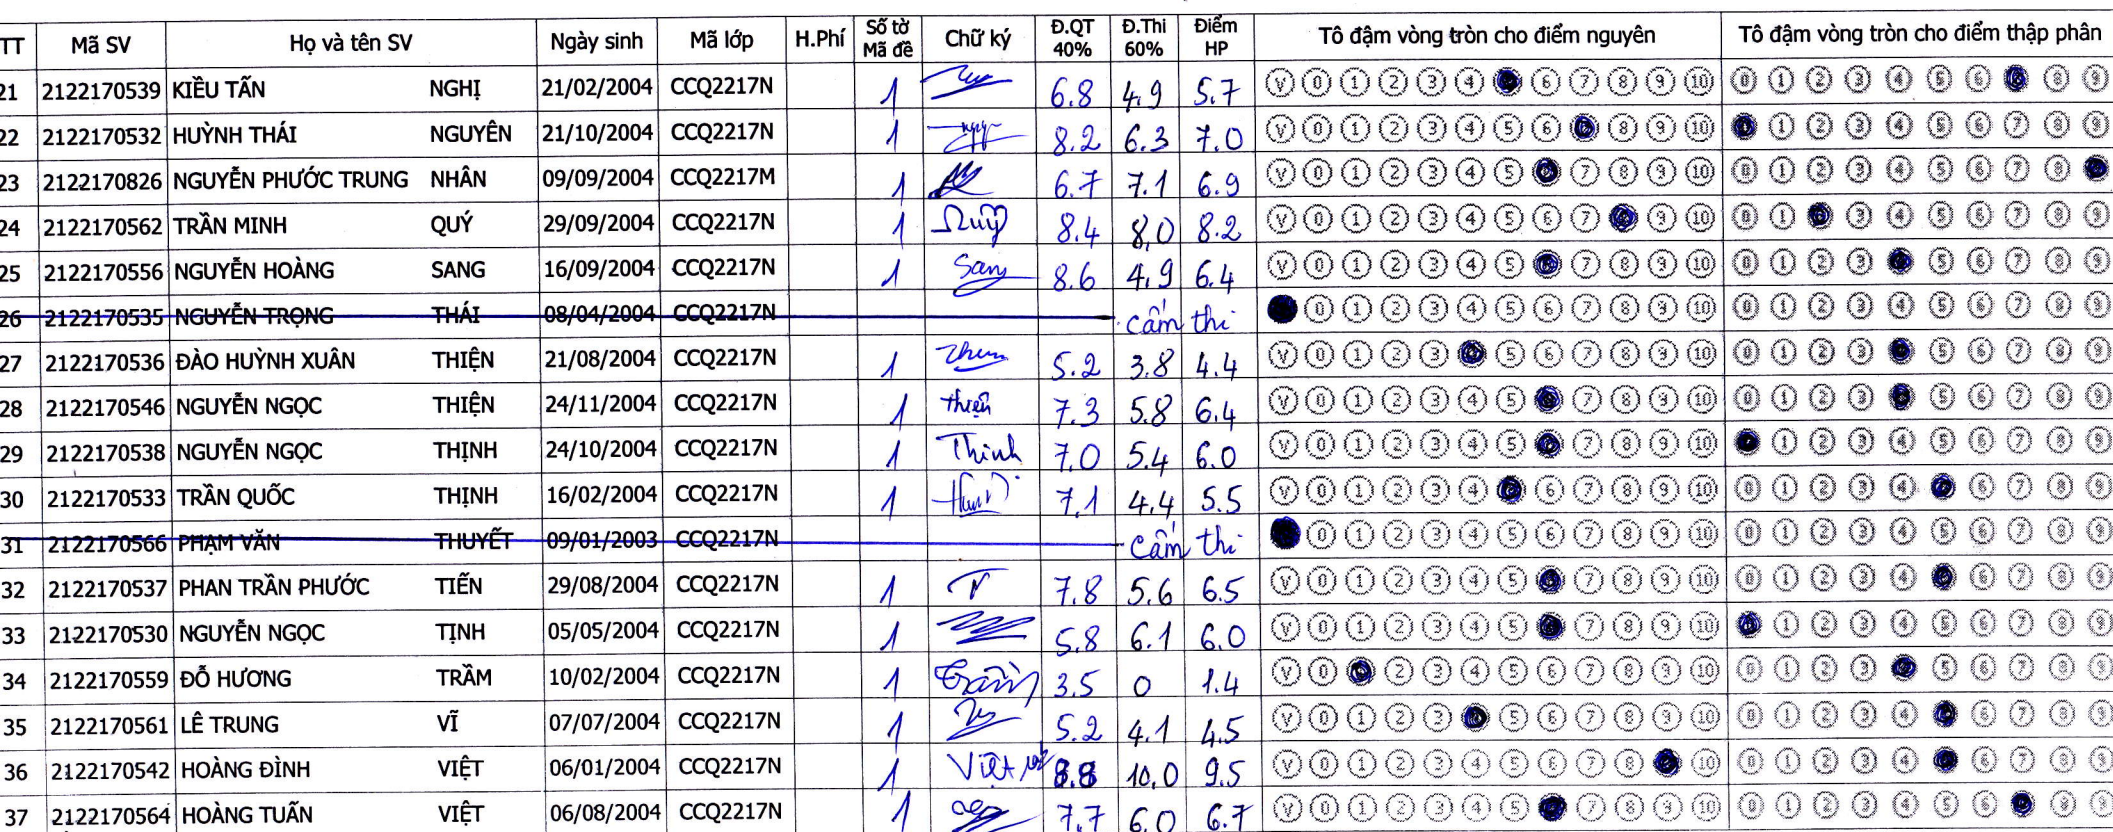 TT Mã SV Họ và tên SV Ngày sinh Mã lớp H.Phí Số tờ Mã đề Chữ ký Đ.QT 40% Đ.Thi 60% Điểm HP Tô đậm vòng tròn cho điểm nguyên Tô đậm vòng tròn cho điểm thập phân
21 2122170539 KIỀU TẤN NGHỊ 21/02/2004 CCQ2217N 1 6.8 4.9 5.7 V 0 1 2 3 4 6 7 8 9 10 0 1 2 3 4 5 6 8 9
22 2122170532 HUỲNH THÁI NGUYÊN 21/10/2004 CCQ2217N 1 8.2 6.3 7.0 V 0 1 2 3 4 5 6 8 9 10 1 2 3 4 5 6 7 8 9
23 2122170826 NGUYỄN PHƯỚC TRUNG NHÂN 09/09/2004 CCQ2217M 1 6.7 7.1 6.9 V 0 1 2 3 4 5 7 8 9 10 0 1 2 3 4 5 6 7 8
24 2122170562 TRẦN MINH QUÝ 29/09/2004 CCQ2217N 1 Quý 8.4 8.0 8.2 V 0 1 2 3 4 5 6 7 9 10 0 1 3 4 5 6 7 8 9
25 2122170556 NGUYỄN HOÀNG SANG 16/09/2004 CCQ2217N 1 Sang 8.6 4.9 6.4 V 0 1 2 3 4 5 7 8 9 10 0 1 2 3 5 6 7 8 9
26 2122170535 NGUYỄN TRỌNG THÁI 08/04/2004 CCQ2217N cấm thi 0 1 2 3 4 5 6 7 8 9 10 0 1 2 3 4 5 6 7 8 9
27 2122170536 ĐÀO HUỲNH XUÂN THIỆN 21/08/2004 CCQ2217N 1 5.2 3.8 4.4 V 0 1 2 3 5 6 7 8 9 10 0 1 2 3 5 6 7 8 9
28 2122170546 NGUYỄN NGỌC THIỆN 24/11/2004 CCQ2217N 1 thiện 7.3 5.8 6.4 V 0 1 2 3 4 5 7 8 9 10 0 1 2 3 5 6 7 8 9
29 2122170538 NGUYỄN NGỌC THỊNH 24/10/2004 CCQ2217N 1 Thinh 7.0 5.4 6.0 V 0 1 2 3 4 5 7 8 9 10 1 2 3 4 5 6 7 8 9
30 2122170533 TRẦN QUỐC THỊNH 16/02/2004 CCQ2217N 1 7.1 4.4 5.5 V 0 1 2 3 4 6 7 8 9 10 0 1 2 3 4 6 7 8 9
31 2122170566 PHẠM VĂN THUYẾT 09/01/2003 CCQ2217N cấm thi 0 1 2 3 4 5 6 7 8 9 10 0 1 2 3 4 5 6 7 8 9
32 2122170537 PHAN TRẦN PHƯỚC TIẾN 29/08/2004 CCQ2217N 1 7.8 5.6 6.5 V 0 1 2 3 4 5 7 8 9 10 0 1 2 3 4 6 7 8 9
33 2122170530 NGUYỄN NGỌC TỊNH 05/05/2004 CCQ2217N 1 5.8 6.1 6.0 V 0 1 2 3 4 5 7 8 9 10 1 2 3 4 5 6 7 8 9
34 2122170559 ĐỖ HƯƠNG TRẦM 10/02/2004 CCQ2217N 1 Trầm 3.5 0 1.4 V 0 2 3 4 5 6 7 8 9 10 0 1 2 3 5 6 7 8 9
35 2122170561 LÊ TRUNG VĨ 07/07/2004 CCQ2217N 1 5.2 4.1 4.5 V 0 1 2 3 5 6 7 8 9 10 0 1 2 3 4 6 7 8 9
36 2122170542 HOÀNG ĐÌNH VIỆT 06/01/2004 CCQ2217N 1 Việt 8.8 10.0 9.5 V 0 1 2 3 4 5 6 7 8 10 0 1 2 3 4 6 7 8 9
37 2122170564 HOÀNG TUẤN VIỆT 06/08/2004 CCQ2217N 1 7.7 6.0 6.7 V 0 1 2 3 4 5 7 8 9 10 0 1 2 3 4 5 6 8 9